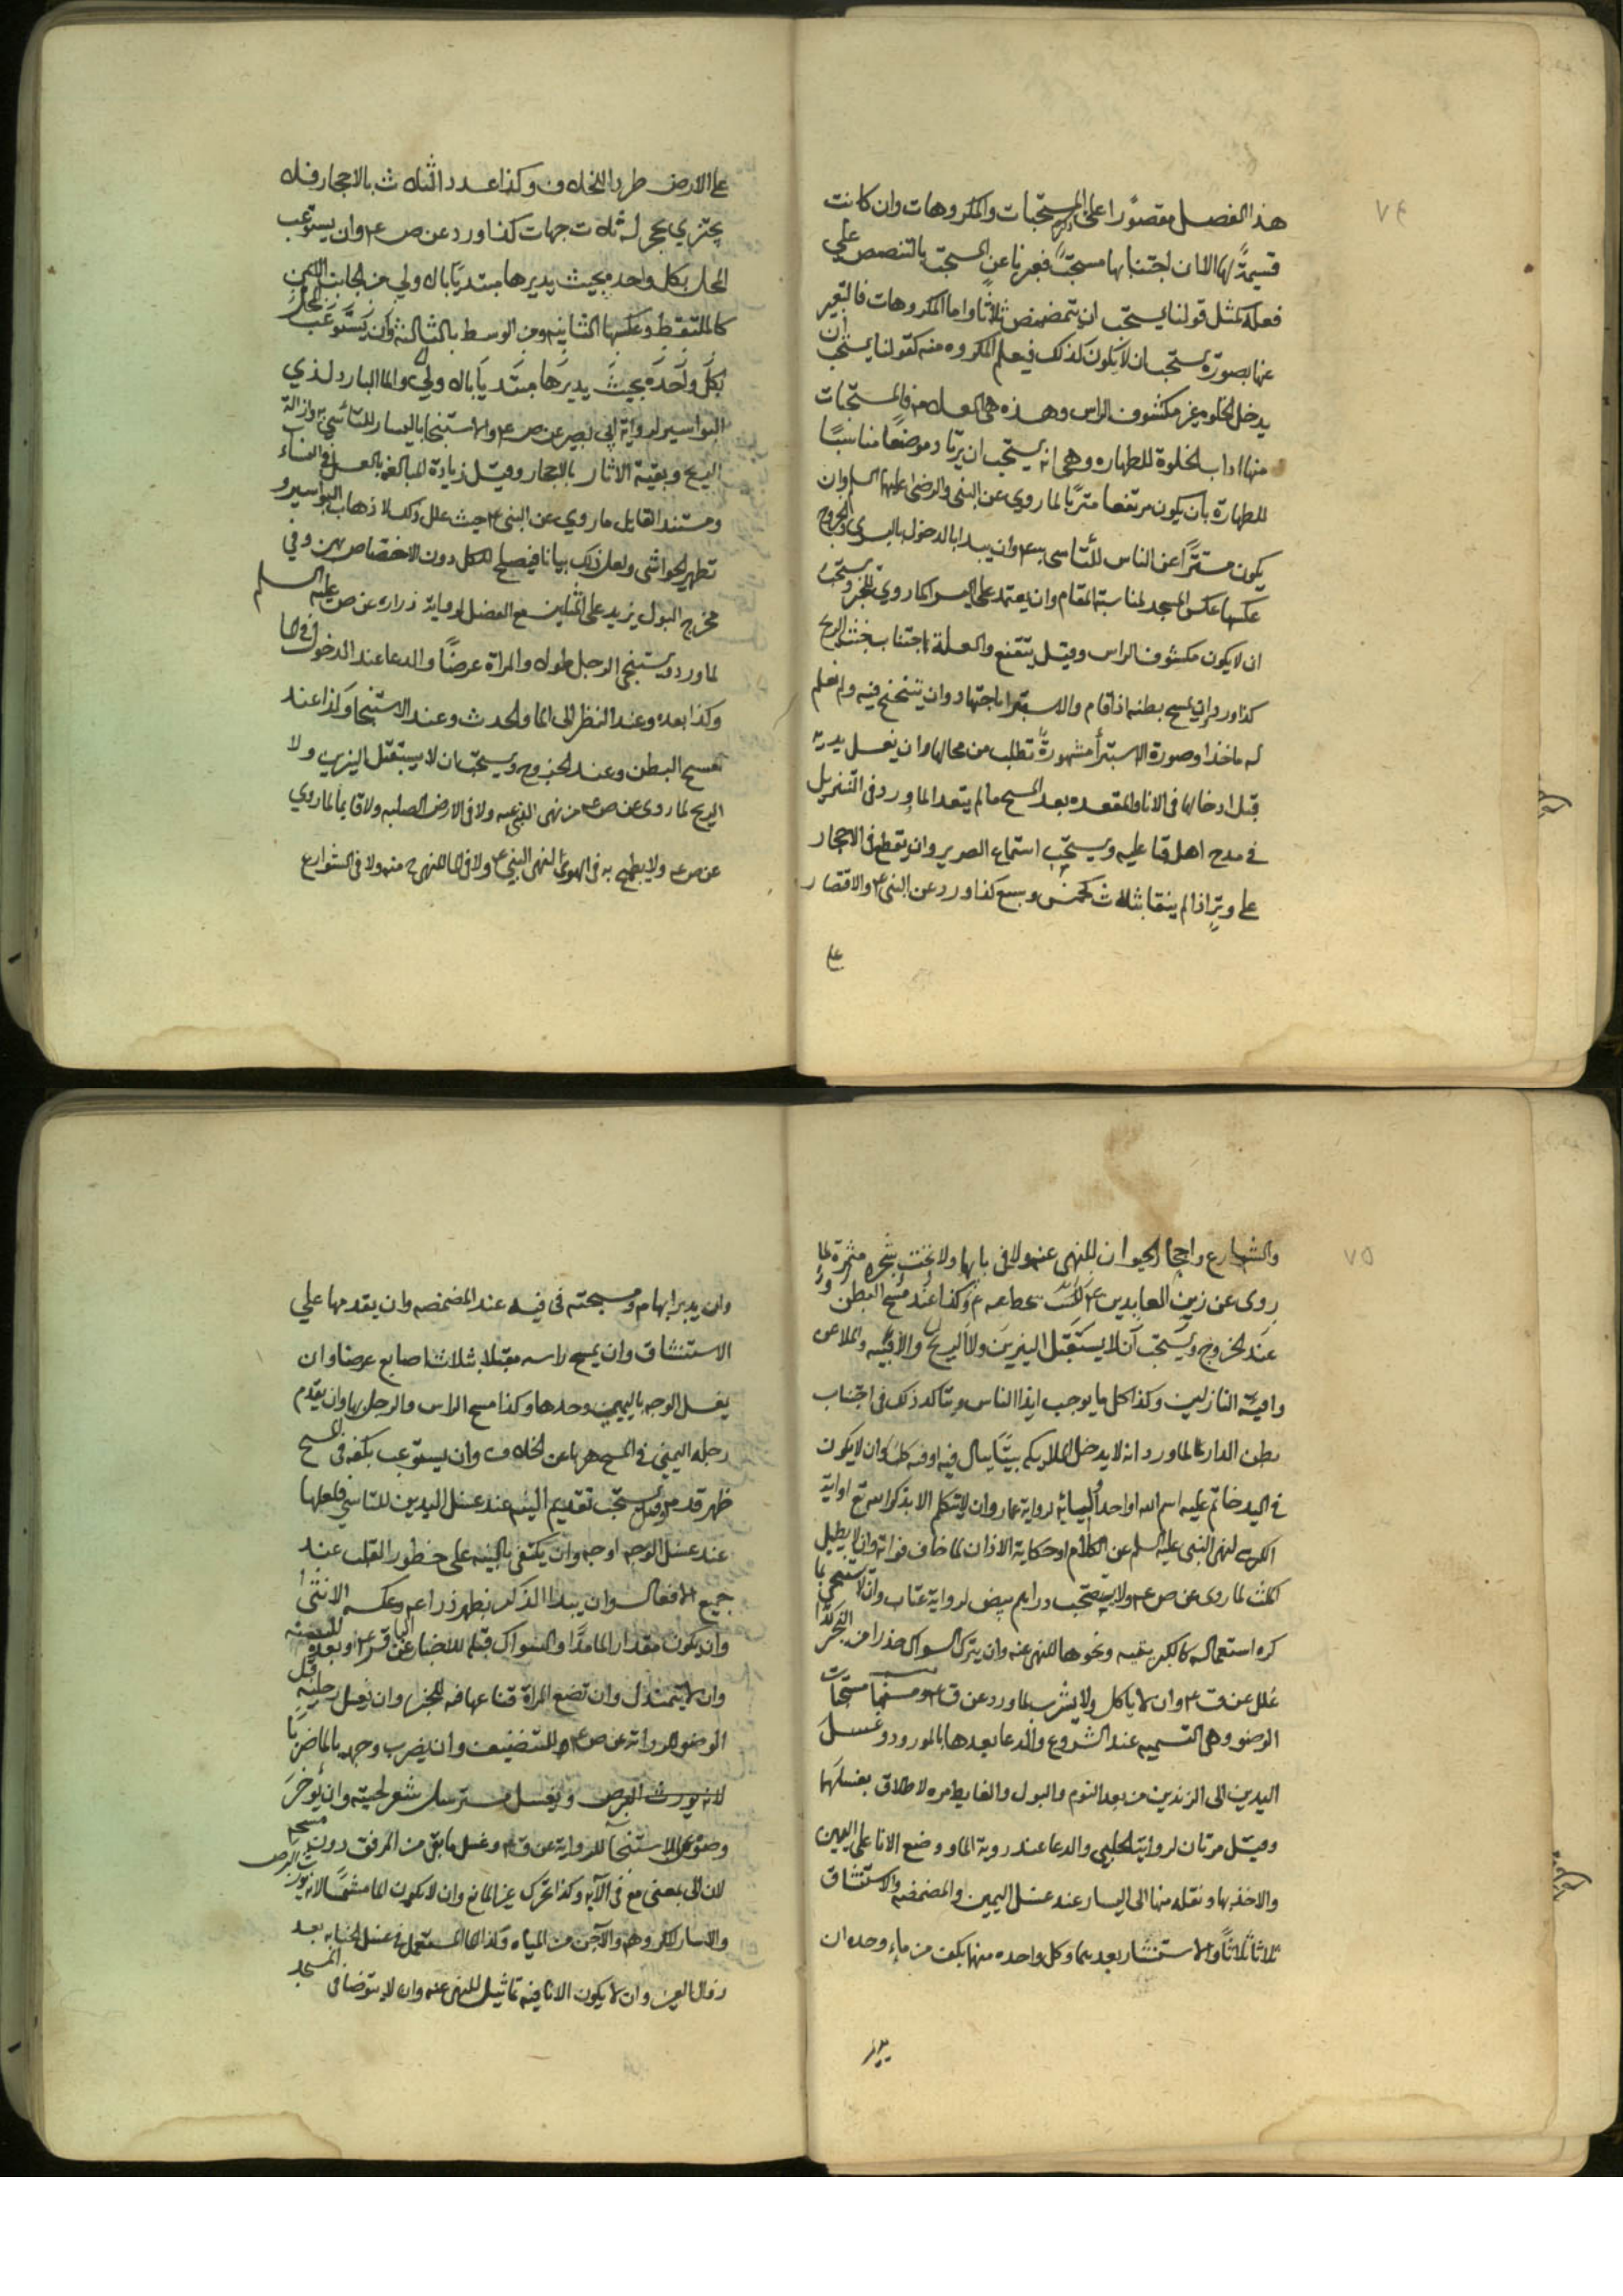 ٧٤
هذا الفصل مقصورا على المستحبات والمكروهات وان كانت
قسيمة لها الا ان اجتنابها مستحبا فعبرنا عن المستحب بالتنصيص على
فعله كمثل قولنا يستحب ان يتمضمض ثلاثا واما المكروهات فالتعبير
عنها بصورة يستحب ان لا يكون كذلك فيعلم المكروه منه كقولنا يستحب ان
يدخل الخلوة غير مكشوف الراس وهذه هي فالمستحبات
منها اداب الخلوة للطهاره وهي انه يستحب ان يرتاد موضعا مناسبا
للطهارة بان يكون مرتفعا لما روي عن النبي والرضا عليهما السلم وان
يكون مستترا عن الناس للتاسي به ع وان يبدا بالدخول باليسرى والخروج
عكسها عكس المسجد لمناسبة المقام وان يعتمد على اليسرى لما روي للخبر ويستحب
ان لا يكون مكشوف الراس وقيل يتقنع والعلة اجتناب الريح
كذا ورد وان يمسح بطنه اذا قام والاستبرا باجتهاد وان يتنحنح فيه ولم نعلم
له ماخذا وصورة الاستبرا مشهورة تطلب من محالها وان يغسل يديه
قبل ادخالها في الانا والمقعده بعد المسح ما لم يتعد الما ورد في التنزيل
في مدح اهل قبا عليه ويستحب استماع الصرير وان يقطع في الاحجار
على وتر اذا لم ينقا بثلاث كخمس وسبع كذا ورد عن النبي ع والاقتصار
على
على الارض طردا للخلاف وكذا عدد الثلاث بالاحجار فلا
يجتزي بحجر له ثلاث جهات كذا ورد عن ص ع وان يستوعب
المحل بكل واحد بحيث يديرها مبتديا بالاولي من الجانب اليمين
كالملتقط وعكسها الثانيه ومن الوسط بالثالثه وان يستوعب المحل
بكل واحده بحيث يديرها مبتديا بالاولي والما البارد لذي
البواسير لرواية ابي بصير عن ص ع والاستنجا باليسار للتاسي به وازالة
الريح وبقية الاثار بالاحجار وقيل زيادة المبالغه بالغسل في النساء
ومستند القايل ما روي عن النبي ع حيث علل ذلك لاذهاب البواسير و
تطهير الحواشي ولعل ذلك بيانا فيصلح للكل دون الاختصاص بهن وفي
مخرج البول يزيد على المثلين مع الفضل لرواية زراره عن ص عليه السلم
لما ورد ويستنجي الرجل طولا والمراة عرضا والدعا عند الدخول في الخلا
وكذا بعده وعند النظر الى الما والحدث وعند الاستنجا وكذا عند
مسح البطن وعند الخروج ويستحب ان لا يستقبل النيرين ولا
الريح لما روي عن ص ع من نهي النبي عنه ولا في الارض الصلبه ولا قايما لما روي
عن ص ع ولا يطمح به في الهوى لنهي النبي ع ولا في الما للنهي منه ولا في الشوارع
٧٥
والشوارع واجحار الحيوان للنهي عنه ولا في بابها ولا تحت شجره مثمره لما
روى عن زين العابدين ع وكذا عند مسح البطن و
عند الخروج ويستحب ان لا يستقبل النيرين ولا الريح والافنيه والملاعن
وافية النازلين وكذا كل ما يوجب ايذا الناس ويتاكد ذلك في اجتناب
بطن الدار لما ورد انه لا يدخل الملايكه بيتا يبال فيه او فيه كلب وان لا يكون
في اليد خاتم عليه اسم الله او احد انبيائه لرواية عمار وان لا يتكلم الا بذكر الله تع او اية
الكرسي لنهي النبي عليه السلم عن الكلام او حكاية الاذان لما خاف فواته وان لا يطيل
المكث لما روى عن ص ع ولا يستصحب دراهم بيض لرواية غياث وان لا يستنجي بما
كره استعماله ونحوها للنهي عنه وان يترك السواك حذرا من البخر كذا
علل عن ق ع وان لا ياكل ولا يشرب لما ورد عن ق ع ومنها مستحبات
الوضو وهي التسميه عند الشروع والدعا بعدها بالمورود وغسل
اليدين الى الزندين من بعد النوم والبول والغايط مره لاطلاق بغسلها
وقيل مرتان لرواية الحلبي والدعا عند روية الما ووضع الانا على اليمين
والاخذ بها ونقله منها الى اليسار عند غسل اليمين والمضمضه والاستنشاق
ثلاثا ثلاثا والاستنثار بعدهما وكل واحده منها بكف من ماء وحده ان
وان يدير ابهامه ومسبحته في فيه عند المضمضه وان يقدمها على
الاستنشاق وان يمسح راسه مقبلا بثلاث اصابع عرضا وان
يغسل الوجه باليمين وحدها وكذا مسح الراس والرجل بها وان يقدم
رجله اليمنى في المسح هربا عن الخلاف وان يستوعب بكفه في المسح
ظهر قدمه وقيل يستحب تقديم النيه عند غسل اليدين للتاسي فلعلها
عند غسل الوجه اوجه وان يكتفي بالنيه على خطور القلب عند
جميع الافعال وان يبدا الذكر بظهر ذراعه وعكسه الانثى
وان يكون مقدار الما مدا والسواك قبله عن الباقر ع او بعده
وان لا يتمندل وان تضع المراة قناعها فيه للخبر وان يغسل رجليه قبل
الوضو لرواية عن ص ع للتنظيف وان يضرب وجهه بالما ضربا
لانه يورث البرص ويغسل مسترسل شعر لحيته وان يؤخر
وضوه عن الاستنجا للرواية عن ق ع وغسل ما بقي من المرفق دون مسحه
لان الى بمعنى مع في الاية وكذا تحرك غير المانع وان لا يكون الما مشمسا لانه يورث البرص
والاسار المكروهه والآجن من المياه وكذا الما المستعمل في غسل الجنابه بعد
زوال العين وان لا يكون الانا فيه تماثيل للنهي عنه وان لا يتوضا في المسجد